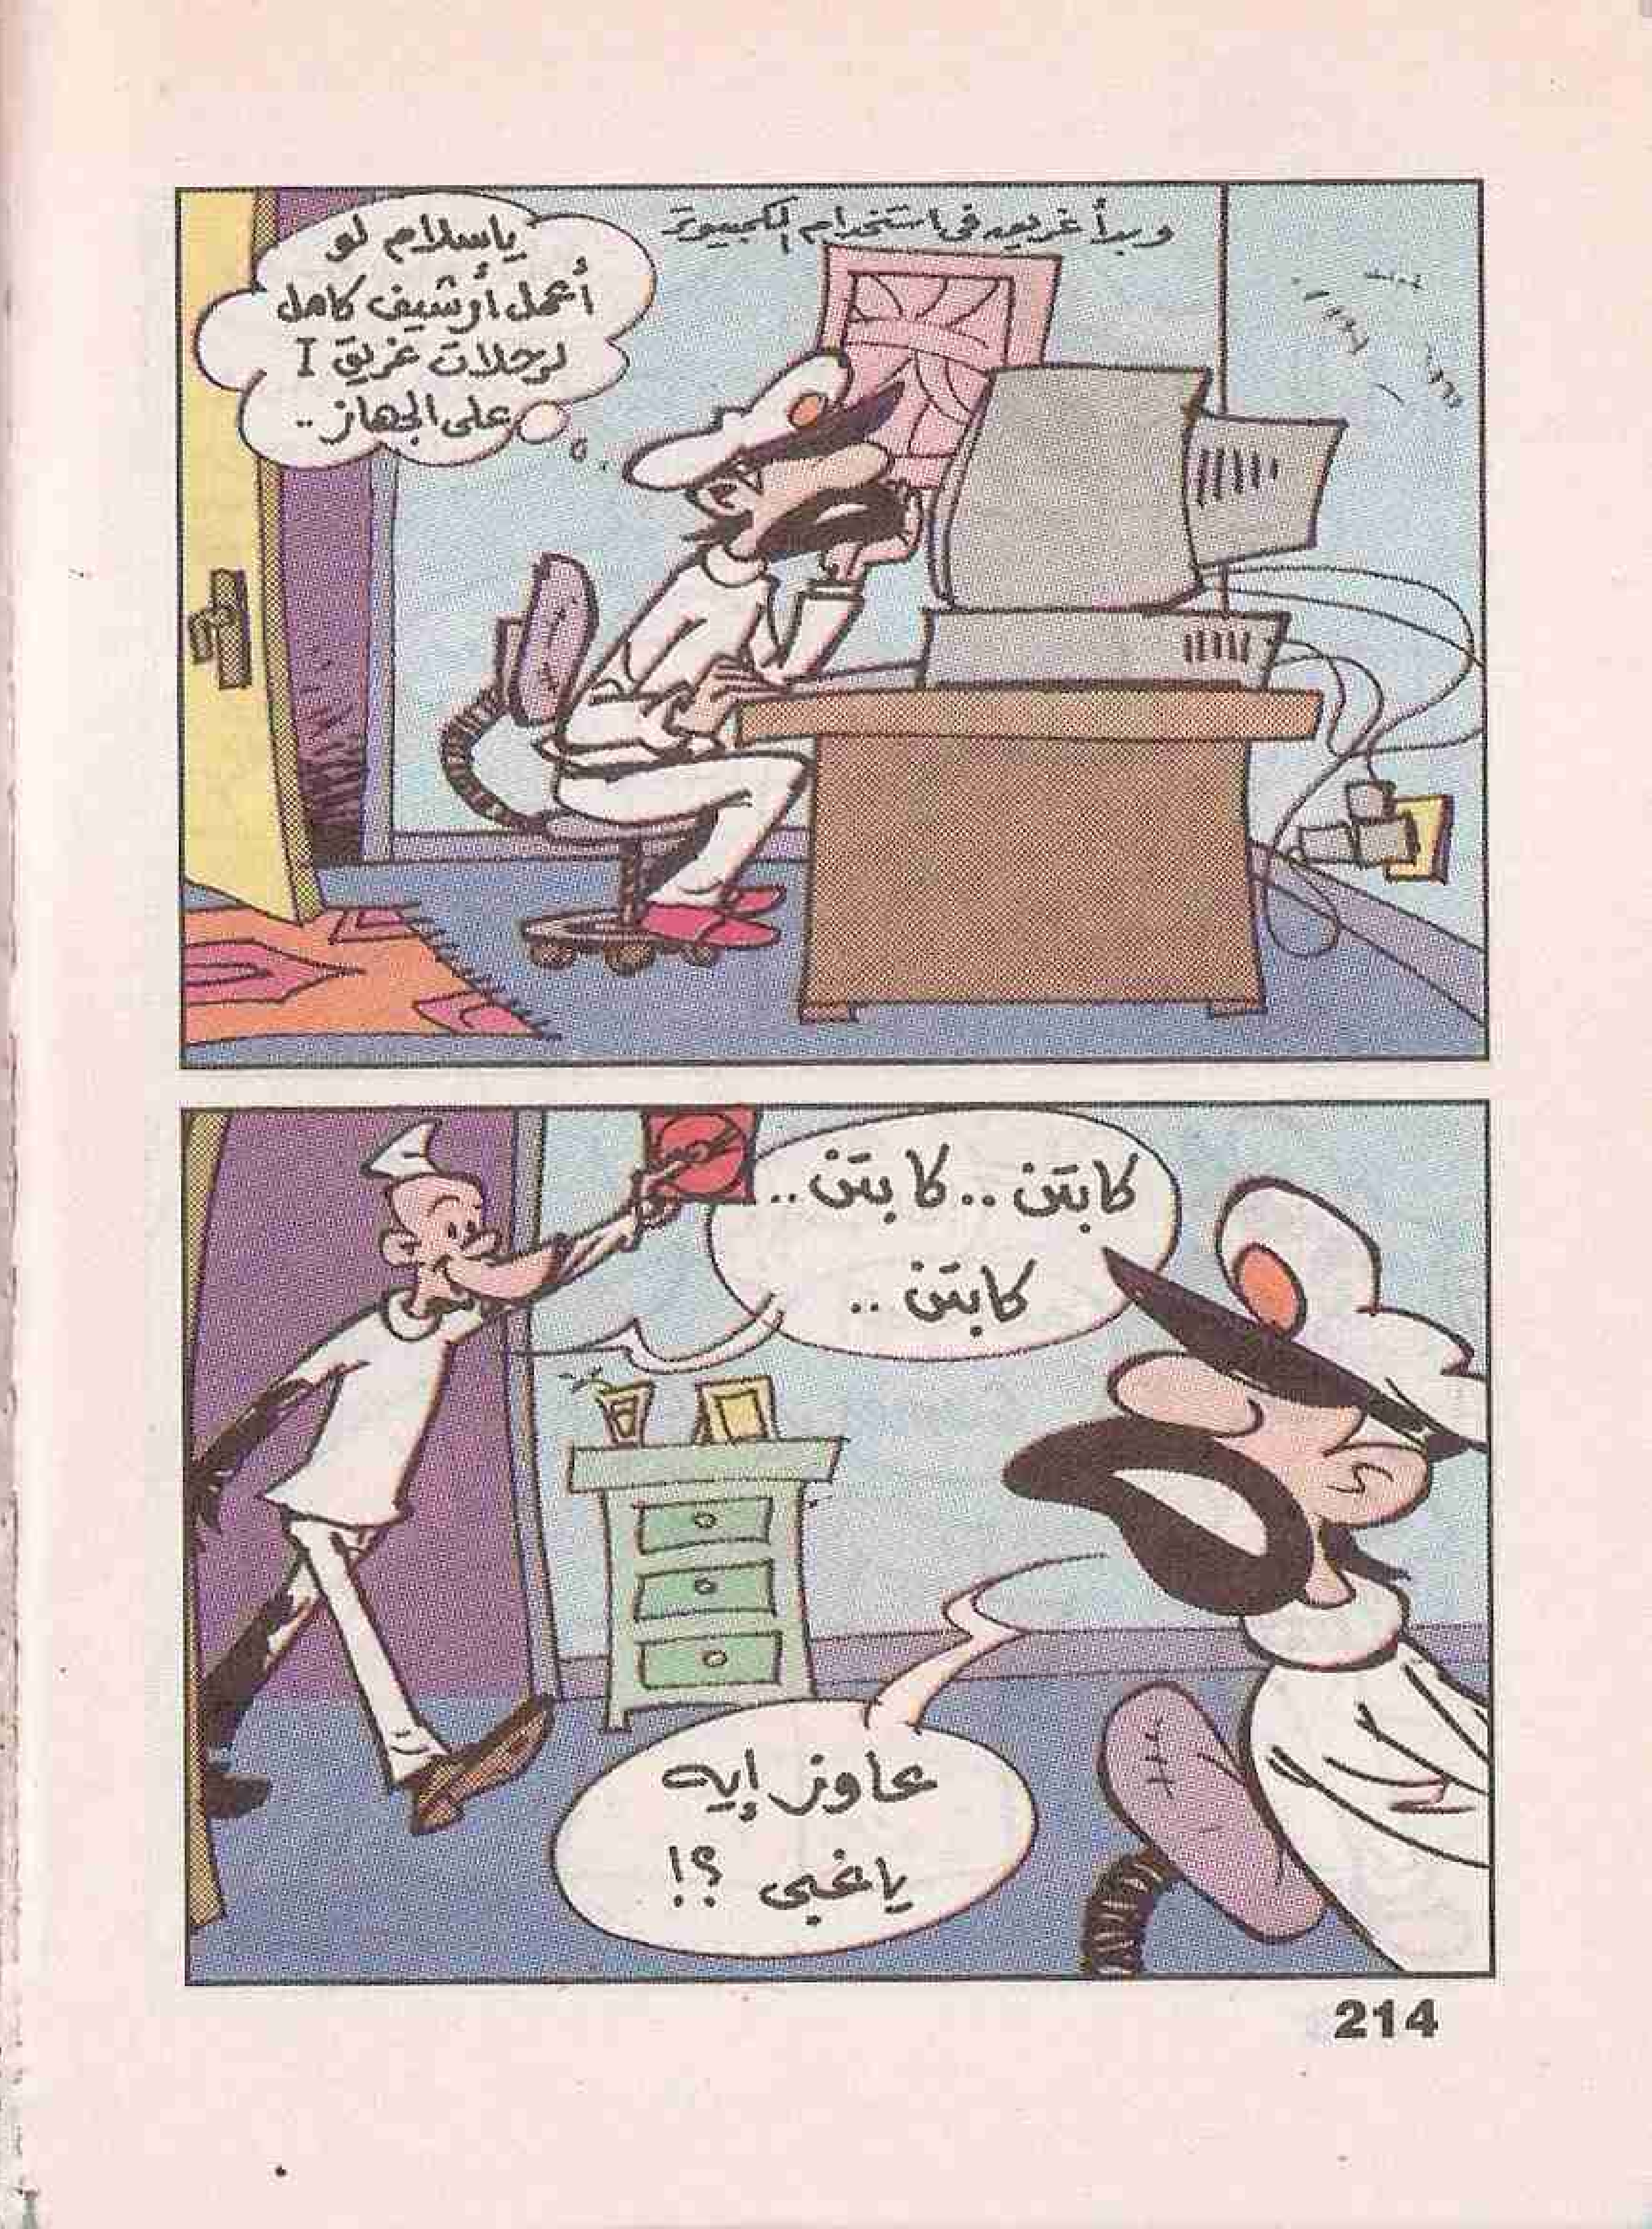 وبدأ غريب فى استخدام الكمبيوتر
ياسلام لو
أعمل أرشيف كامل
لرحلات غريق I
على الجهاز..
كابتن .. كابتن ..
كابتن ..
عاوز إيه
ياغبى ؟!
214